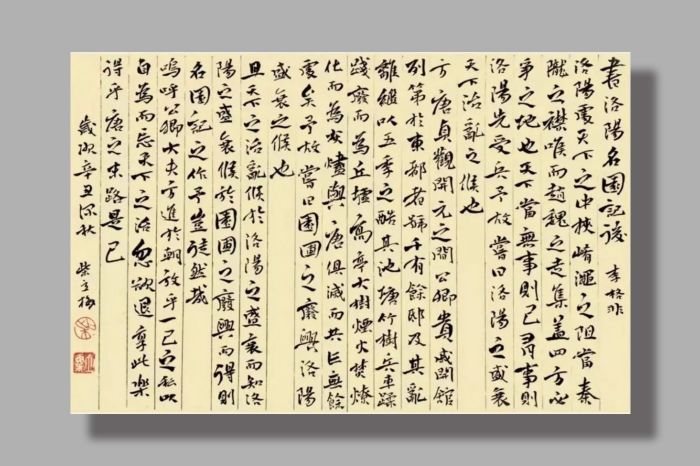 書洛陽名園記後 李格非
洛陽處天下之中挾崤澠之阻當秦
隴之襟喉而趙魏之走集蓋四方必
爭之地也天下當無事則已有事則
洛陽先受兵予故嘗曰洛陽之盛衰
天下治亂之候也
方唐貞觀開元之間公卿貴戚開館
列第於東都者號千有餘邸及其亂
離繼以五季之酷其池塘竹樹兵車蹂
踐廢而為丘墟高亭大樹煙火焚燎
化而為灰燼與唐俱滅而共亡無餘
處矣予故嘗曰園圃之廢興洛陽
盛衰之候也
且天下之治亂候於洛陽之盛衰而知洛
陽之盛衰候於園圃之廢興而得則
名園記之作予豈徒然哉
嗚呼公卿大夫方進於朝放乎一己之私以
自為而忘天下之治忽欲退享此樂
得乎唐之末路是已
歲次辛丑深秋 柴